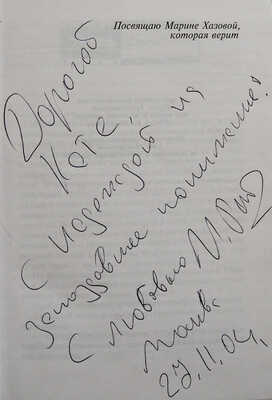 Посвящаю Марине Хазовой,
которая верит
Дорогой
Кате,
С надеждой на
запоздавшее понимание!
С любовью
Москва
27.11.04.